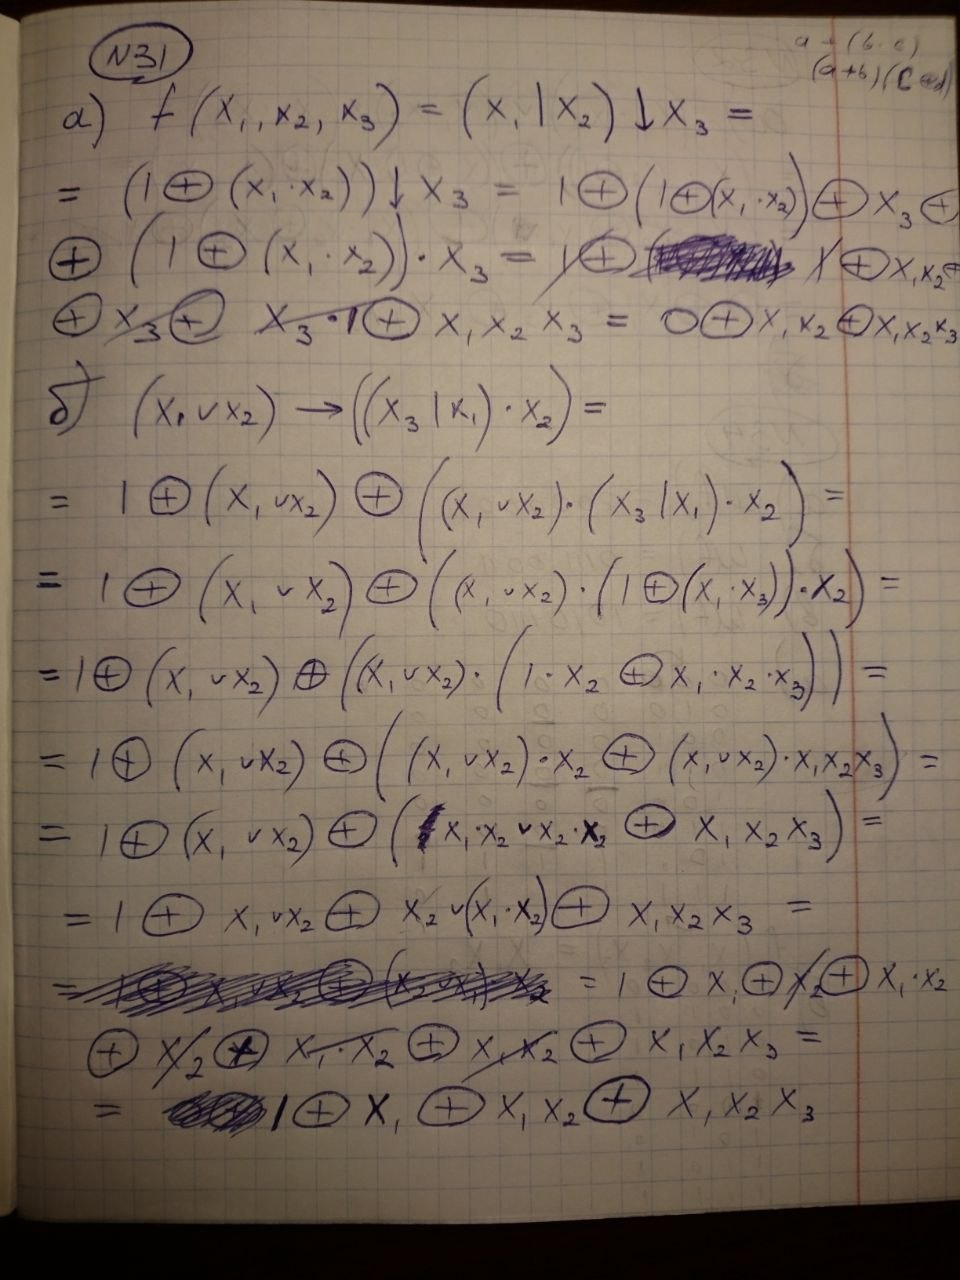 N31
a + (b·c)
(a+b)(c+d)
а) f(x₁, x₂, x₃) = (x₁ | x₂) ↓ x₃ =
= (1 ⊕ (x₁·x₂)) ↓ x₃ = 1 ⊕ (1 ⊕ (x₁·x₂)) ⊕ x₃ ⊕
⊕ (1 ⊕ (x₁·x₂))·x₃ = 1 ⊕ 1 ⊕ x₁x₂ ⊕
⊕ x₃ ⊕ x₃·1 ⊕ x₁x₂x₃ = 0 ⊕ x₁x₂ ⊕ x₁x₂x₃
б) (x₁ ∨ x₂) → ((x₃ | x₁)·x₂) =
= 1 ⊕ (x₁ ∨ x₂) ⊕ ((x₁ ∨ x₂)·(x₃ | x₁)·x₂) =
= 1 ⊕ (x₁ ∨ x₂) ⊕ ((x₁ ∨ x₂)·(1 ⊕ (x₁·x₃))·x₂) =
= 1 ⊕ (x₁ ∨ x₂) ⊕ ((x₁ ∨ x₂)·(1·x₂ ⊕ x₁·x₂·x₃)) =
= 1 ⊕ (x₁ ∨ x₂) ⊕ ((x₁ ∨ x₂)·x₂ ⊕ (x₁ ∨ x₂)·x₁x₂x₃) =
= 1 ⊕ (x₁ ∨ x₂) ⊕ (x₁·x₂ ∨ x₂·x₂ ⊕ x₁x₂x₃) =
= 1 ⊕ x₁ ∨ x₂ ⊕ x₂ ∨ (x₁·x₂) ⊕ x₁x₂x₃ =
= 1 ⊕ x₁ ⊕ x₂ ⊕ x₁·x₂
⊕ x₂ ⊕ x₁·x₂ ⊕ x₁x₂ ⊕ x₁x₂x₃ =
= 1 ⊕ x₁ ⊕ x₁x₂ ⊕ x₁x₂x₃